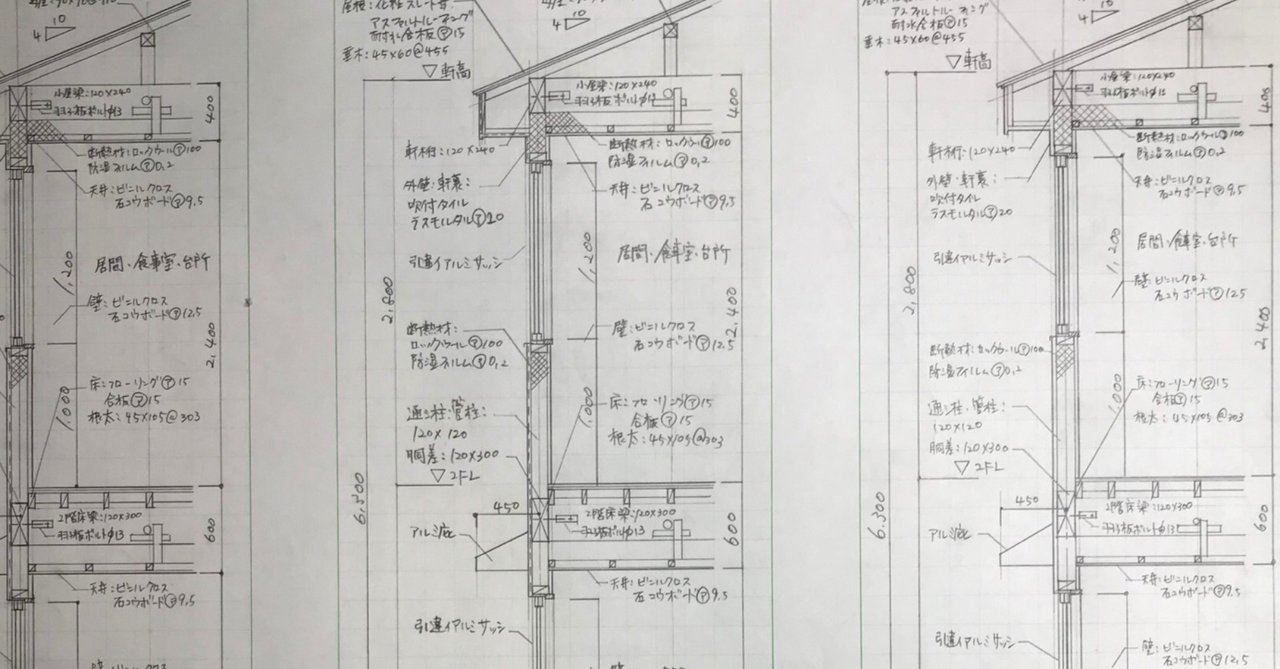 10
4
400
小屋梁:120×240
羽子板ボルトφ13
断熱材:ロックウール㋐100
防湿フィルム㋐0.2
天井:ビニルクロス
石コウボード㋐9.5
1,200
居間・食事室・台所
壁:ビニルクロス
石コウボード㋐12.5
2,400
床:フローリング㋐15
合板㋐15
根太:45×105@303
1,000
2階床梁:120×300
羽子板ボルトφ13
600
天井:ビニルクロス
石コウボード㋐9.5
屋根:化粧スレート葺
アスファルトルーフィング
耐水合板㋐15
垂木:45×60@455
▽軒高
10
4
小屋梁:120×240
羽子板ボルトφ13
400
軒桁:120×240
断熱材:ロックウール㋐100
防湿フィルム㋐0.2
外壁・軒裏:
吹付タイル
ラスモルタル㋐20
天井:ビニルクロス
石コウボード㋐9.5
引違イアルミサッシ
1,200
居間・食事室・台所
2,800
断熱材:
ロックウール㋐100
防湿フィルム㋐0.2
壁:ビニルクロス
石コウボード㋐12.5
2,400
通シ柱・管柱:
120×120
胴差:120×300
▽2FL
床:フローリング㋐15
合板㋐15
根太:45×105@303
1,000
6,300
450
2階床梁:120×300
羽子板ボルトφ13
600
アルミ庇
天井:ビニルクロス
石コウボード㋐9.5
引違イアルミサッシ
アスファルトルーフィング
耐水合板㋐15
垂木:45×60@455
▽軒高
10
4
小屋梁:120×240
羽子板ボルトφ13
400
軒桁:120×240
断熱材:ロックウール㋐100
防湿フィルム㋐0.2
外壁・軒裏:
吹付タイル
ラスモルタル㋐20
天井:ビニルクロス
石コウボード㋐9.5
引違イアルミサッシ
1,200
居間・食事室・台所
2,800
壁:ビニルクロス
石コウボード㋐12.5
2,400
断熱材:ロックウール㋐100
防湿フィルム㋐0.2
通シ柱・管柱:
120×120
胴差:120×300
▽2FL
床:フローリング㋐15
合板㋐15
根太:45×105@303
1,000
6,300
450
2階床梁:120×300
羽子板ボルトφ13
600
アルミ庇
天井:ビニルクロス
石コウボード㋐9.5
引違イアルミサッシ
壁:ビニルクロス
石コウボード㋐12.5